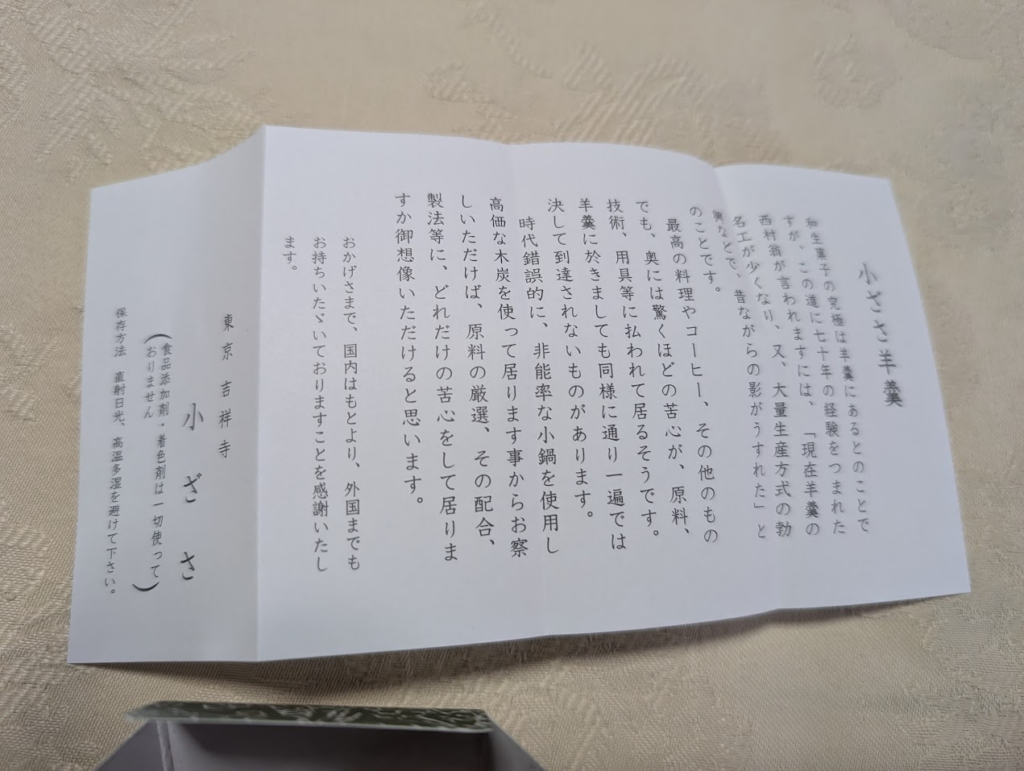 小ざさ羊羹
和生菓子の究極は羊羹にあるとのことで
すが、この道に七十年の経験をつまれた
西村翁が言われますには、「現在羊羹の
名工が少くなり、又、大量生産方式の勃
興などで、昔ながらの影がうすれた」と
のことです。
最高の料理やコーヒー、その他のもの
でも、奥には驚くほどの苦心が、原料、
技術、用具等に払われて居るそうです。
羊羹に於きましても同様に通り一遍では
決して到達されないものがあります。
時代錯誤的に、非能率な小鍋を使用し
高価な木炭を使って居ります事からお察
しいただけば、原料の厳選、その配合、
製法等に、どれだけの苦心をして居りま
すか御想像いただけると思います。
おかげさまで、国内はもとより、外国までも
お持ちいたゞいておりますことを感謝いたし
ます。
東京吉祥寺
小ざさ
(食品添加剤・着色剤は一切使って
おりません)
保存方法 直射日光、高温多湿を避けて下さい。